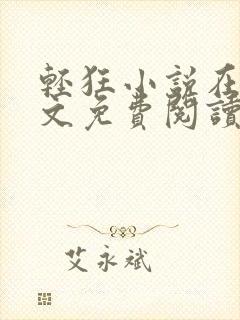 輕狂小說在
文免費閱讀
艾永斌